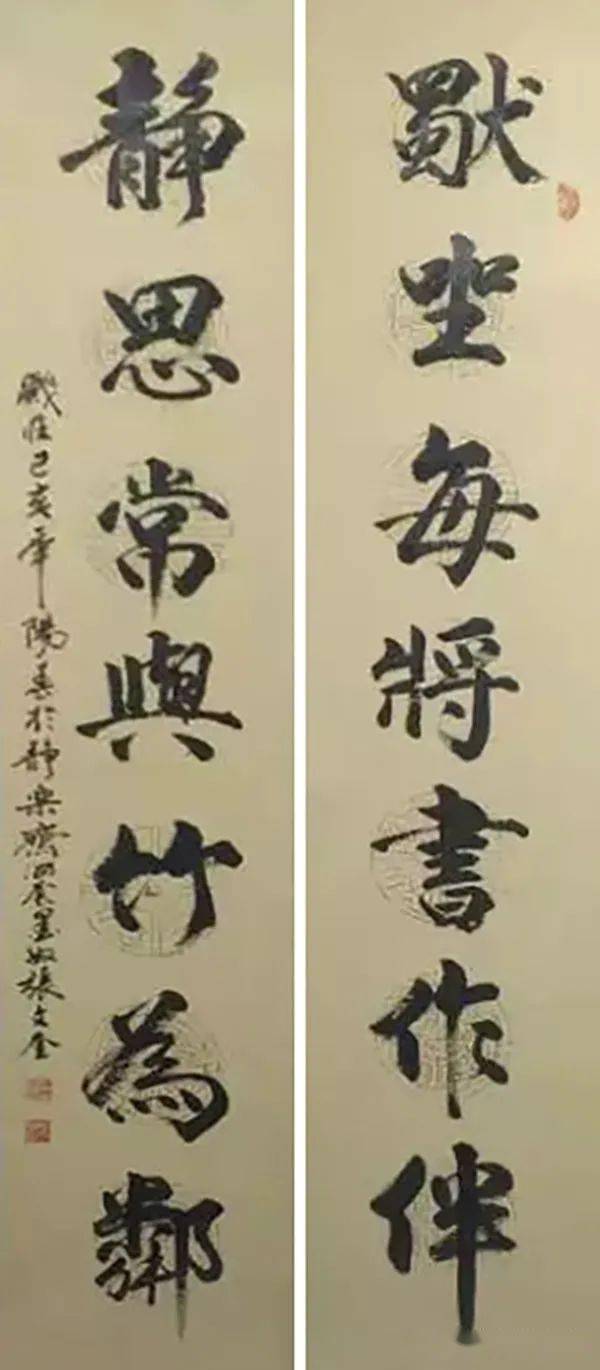 獨坐每將書作伴
靜思常與竹為鄰
歲在己亥年陽春於靜樂齋張文全